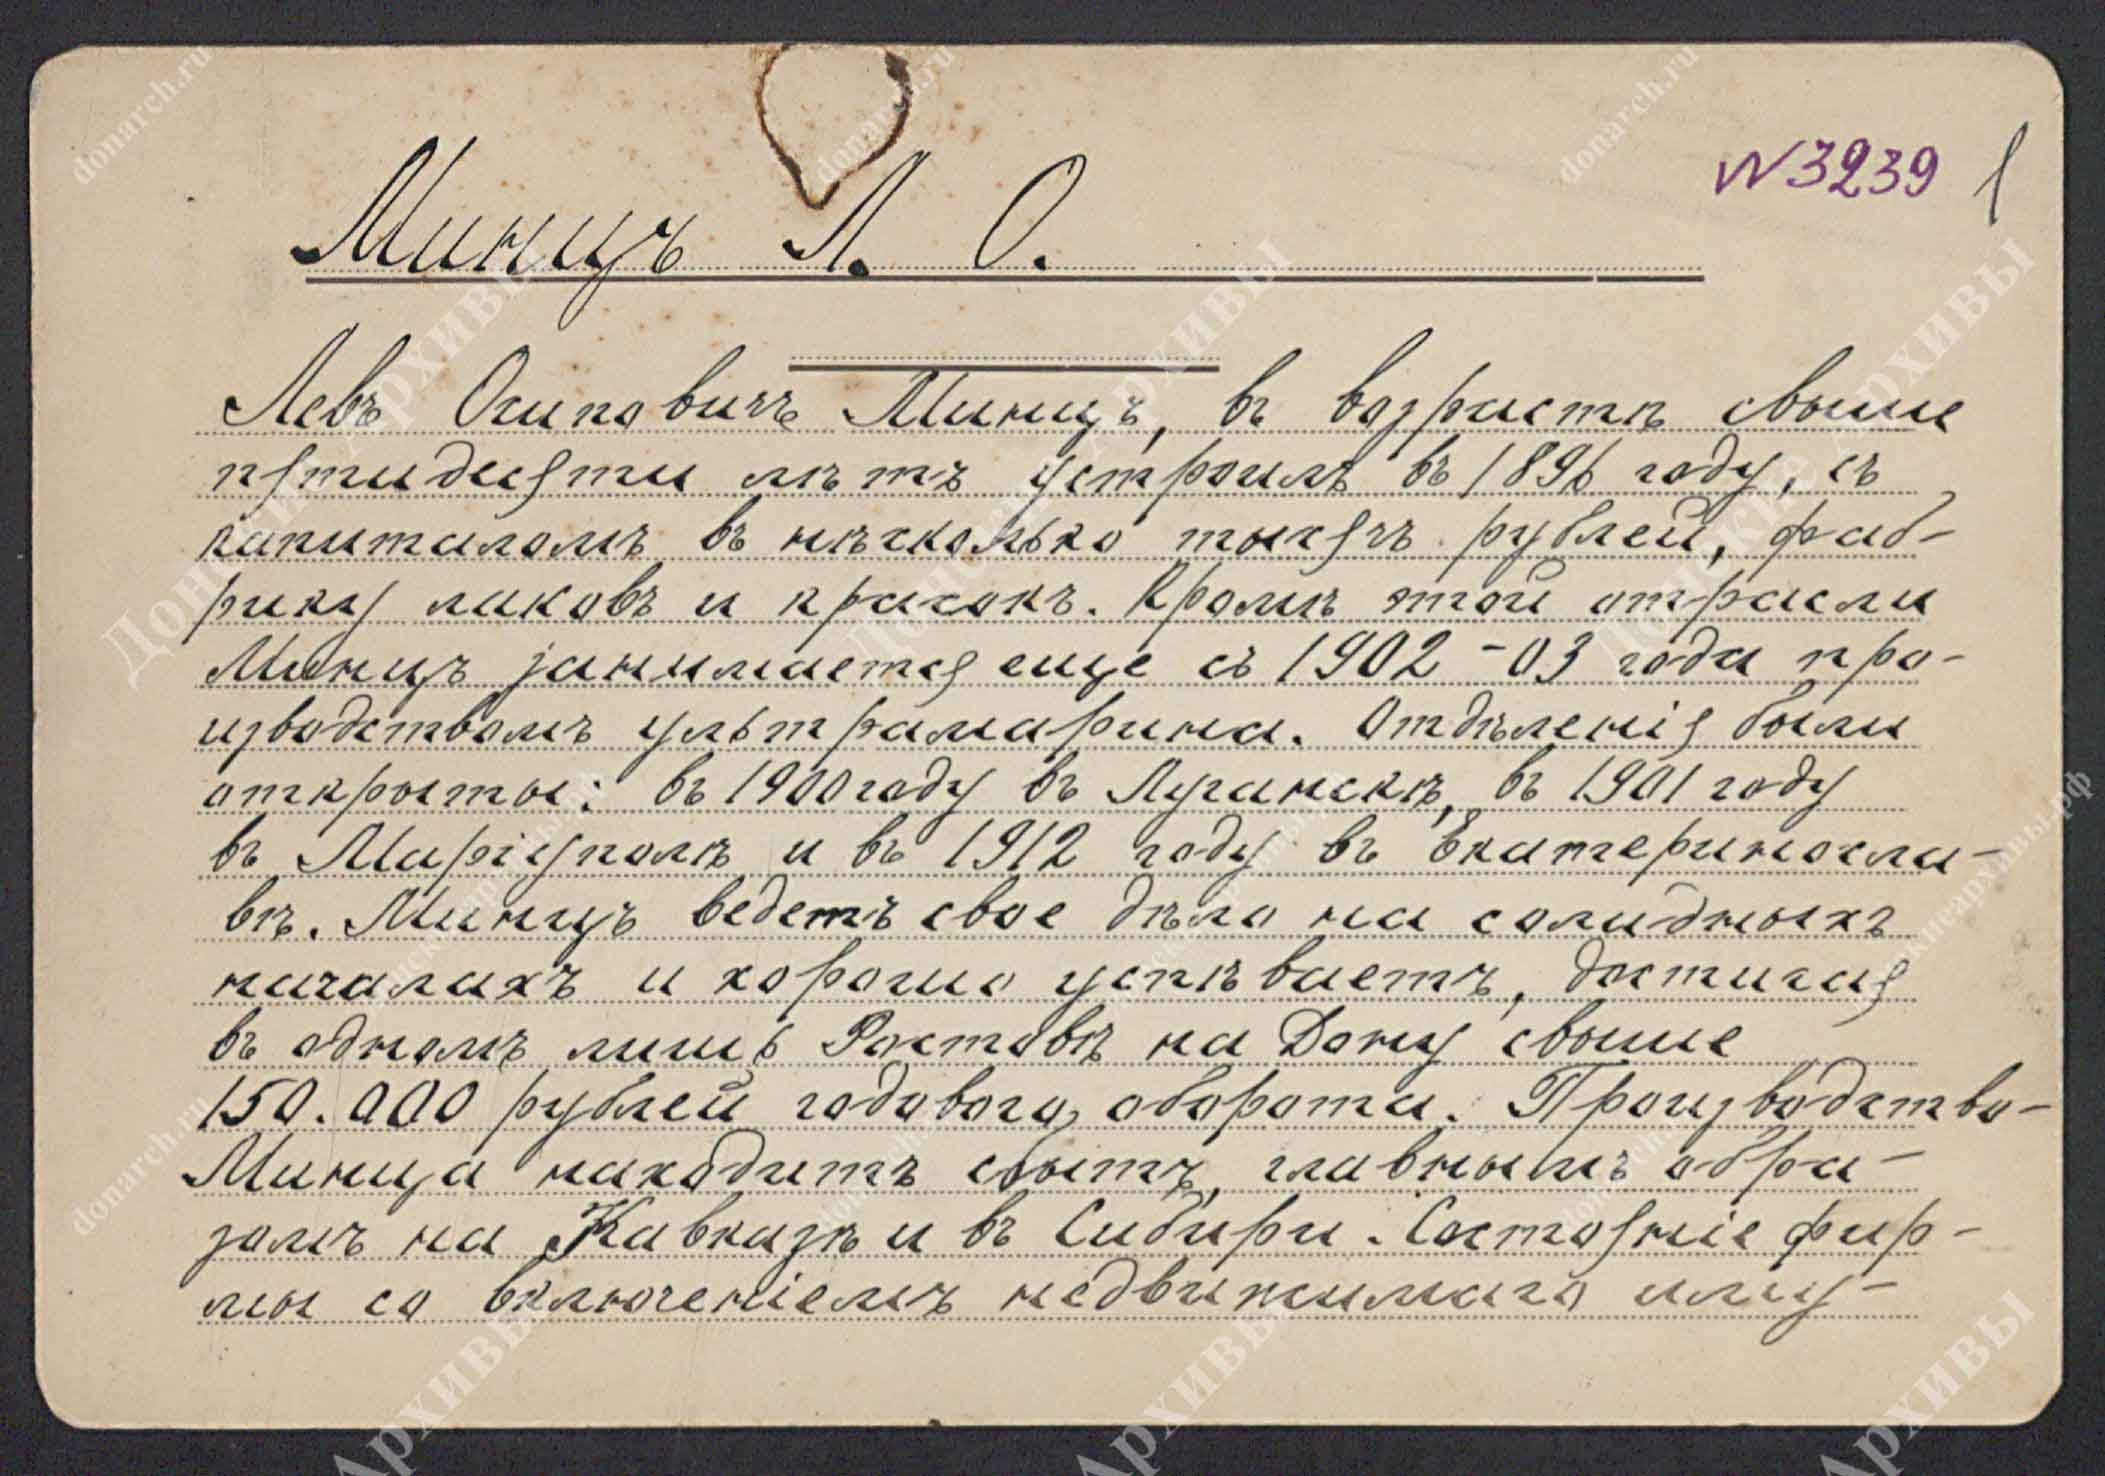 N3239 1
Минцъ Л. О.
Левъ Осиповичъ Минцъ, въ возрастѣ свыше
пятидесяти лѣтъ устроилъ въ 1896 году, съ
капиталомъ въ нѣсколько тысячъ рублей, фаб-
рику лаковъ и красокъ. Кромѣ этой отрасли
Минцъ занимается еще съ 1902-03 года про-
изводствомъ ультрамарина. Отдѣленія были
открыты: въ 1900 году въ Луганскѣ, въ 1901 году
въ Маріуполѣ и въ 1912 году въ Екатериносла-
вѣ. Минцъ ведетъ свое дѣло на солидныхъ
началахъ и хорошо успѣваетъ, достигая
въ одномъ лишь Ростовѣ на Дону свыше
150.000 рублей годового оборота. Производство-
Минца находитъ сбытъ, главнымъ обра-
зомъ на Кавказѣ и въ Сибири. Состояніе фир-
мы со включеніемъ недвижимаго иму-
donarch.ru
Донские Архивы
донскиеархивы.рф